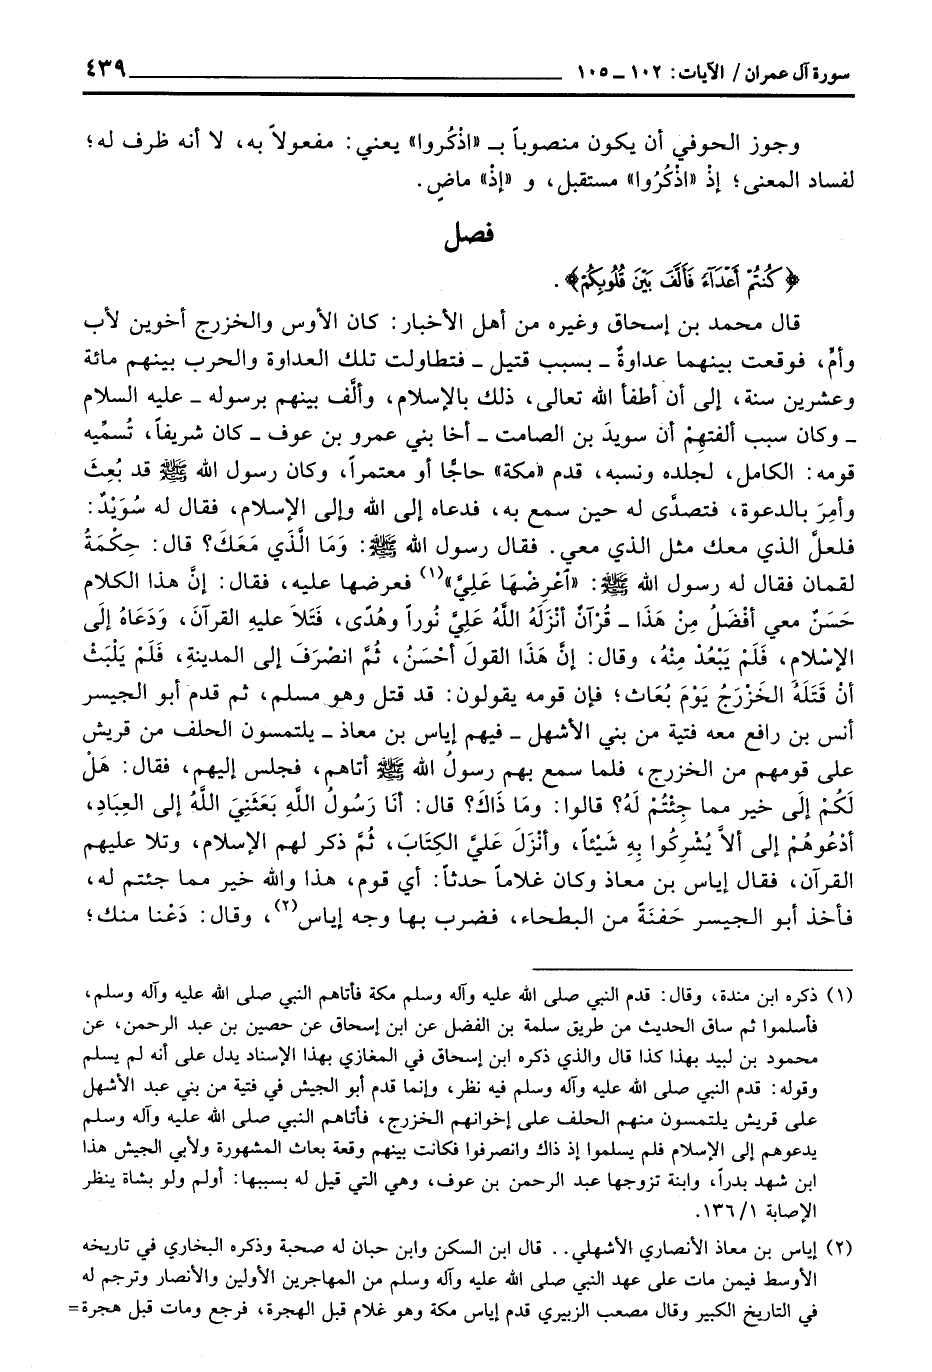 سورة آل عمران / الآيات: ١٠٢ ــ ١٠٥ ٤٣٩
وجوز الحوفي أن يكون منصوباً بـ «اذْكُروا» يعني: مفعولاً به، لا أنه ظرف له؛
لفساد المعنى؛ إذْ «اذْكُرُوا» مستقبل، و «إذْ» ماضٍ.
فصل
﴿كُنتُمْ أَعْدَآءً فَأَلَّفَ بَيْنَ قُلُوبِكُمْ﴾.
قال محمد بن إسحاق وغيره من أهل الأخبار: كان الأوس والخزرج أخوين لأب
وأمٍّ، فوقعت بينهما عداوةٌ ـ بسبب قتيل ـ فتطاولت تلك العداوة والحرب بينهم مائة
وعشرين سنة، إلى أن أطفأ الله تعالى، ذلك بالإسلام، وألَّف بينهم برسوله ـ عليه السلام
ـ وكان سبب ألفتهِمْ أن سويدَ بن الصامت ـ أخا بني عمرو بن عوف ـ كان شريفاً، تُسمِّيه
قومه: الكامل، لجلده ونسبه، قدم «مكة» حاجًّا أو معتمراً، وكان رسول الله ﷺ قد بُعِثَ
وأمِرَ بالدعوة، فتصدَّى له حين سمع به، فدعاه إلى الله وإلى الإسلام، فقال له سُوَيْدٌ:
فلعلَّ الذي معك مثل الذي معي. فقال رسول الله ﷺ: وَمَا الَّذي مَعَكَ؟ قال: حِكْمَةُ
لقمان فقال له رسول الله ﷺ: «اَعْرِضْهَا عَلِيَّ»(١) فعرضها عليه، فقال: إنَّ هذا الكلام
حَسَنٌ معي أفْضَلُ مِنْ هَذَا ـ قُرْآنٌ أنْزَلَهُ اللَّهُ عَلِيَّ نُوراً وهُدًى، فَتَلاَ عليهِ القرآن، وَدَعَاهُ إلى
الإسْلام، فَلَمْ يَبْعُدْ مِنْهُ، وقال: إنَّ هَذَا القولَ أحْسَنُ، ثُمَّ انصْرَفَ إلى المدينةِ، فَلَمْ يَلْبَثْ
أنْ قَتَلَهُ الخَزْرَجُ يَوْمَ بُعَاث؛ فإن قومه يقولون: قد قتل وهو مسلم، ثم قدم أبو الجيسر
أنس بن رافع معه فتية من بني الأشهل ـ فيهم إياس بن معاذ ـ يلتمسون الحلف من قريش
على قومهم من الخزرج، فلما سمع بهم رسولُ الله ﷺ أتاهم، فجلس إليهم، فقال: هَلْ
لَكُمْ إلَى خير مما جِئْتُمْ لَهُ؟ قالوا: ومَا ذَاكَ؟ قال: أنَا رَسُولُ اللَّهِ بَعَثَنِيَ اللَّهُ إلى العِبَادِ،
أدْعُوهُمْ إلى ألاَّ يُشْرِكُوا بِهِ شَيْئاً، وأنْزَلَ عَليَّ الكِتَابَ، ثُمَّ ذكر لهم الإسلام، وتلا عليهم
القرآن، فقال إياس بن معاذ وكان غلاماً حدثاً: أي قوم، هذا والله خير مما جئتم له،
فأخذ أبو الجيسر حَفنَةً من البطحاء، فضرب بها وجه إياس(٢)، وقال: دَعْنا منك؛
(١) ذكره ابن مندة، وقال: قدم النبي صلى الله عليه وآله وسلم مكة فأتاهم النبي صلى الله عليه وآله وسلم،
فأسلموا ثم ساق الحديث من طريق سلمة بن الفضل عن ابن إسحاق عن حصين بن عبد الرحمن، عن
محمود بن لبيد بهذا كذا قال والذي ذكره ابن إسحاق في المغازي بهذا الإسناد يدل على أنه لم يسلم
وقوله: قدم النبي صلى الله عليه وآله وسلم فيه نظر، وإنما قدم أبو الجيش في فتية من بني عبد الأشهل
على قريش يلتمسون منهم الحلف على إخوانهم الخزرج، فأتاهم النبي صلى الله عليه وآله وسلم
يدعوهم إلى الإسلام فلم يسلموا إذ ذاك وانصرفوا فكانت بينهم وقعة بعاث المشهورة ولأبي الجيش هذا
ابن شهد بدراً، وابنة تزوجها عبد الرحمن بن عوف، وهي التي قيل له بسببها: أولم ولو بشاة ينظر
الإصابة ١/ ١٣٦.
(٢) إياس بن معاذ الأنصاري الأشهلي.. قال ابن السكن وابن حبان له صحبة وذكره البخاري في تاريخه
الأوسط فيمن مات على عهد النبي صلى الله عليه وآله وسلم من المهاجرين الأولين والأنصار وترجم له
في التاريخ الكبير وقال مصعب الزبيري قدم إياس مكة وهو غلام قبل الهجرة، فرجع ومات قبل هجرة=